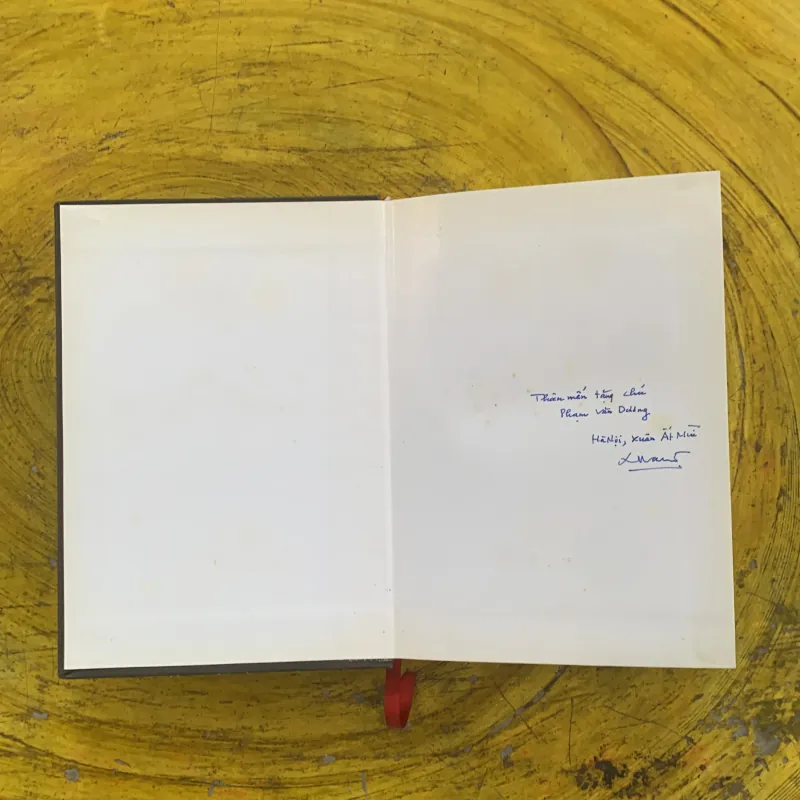 Thân mến tặng chú
Phạm Văn Dương
Hà Nội, Xuân Ất Mùi